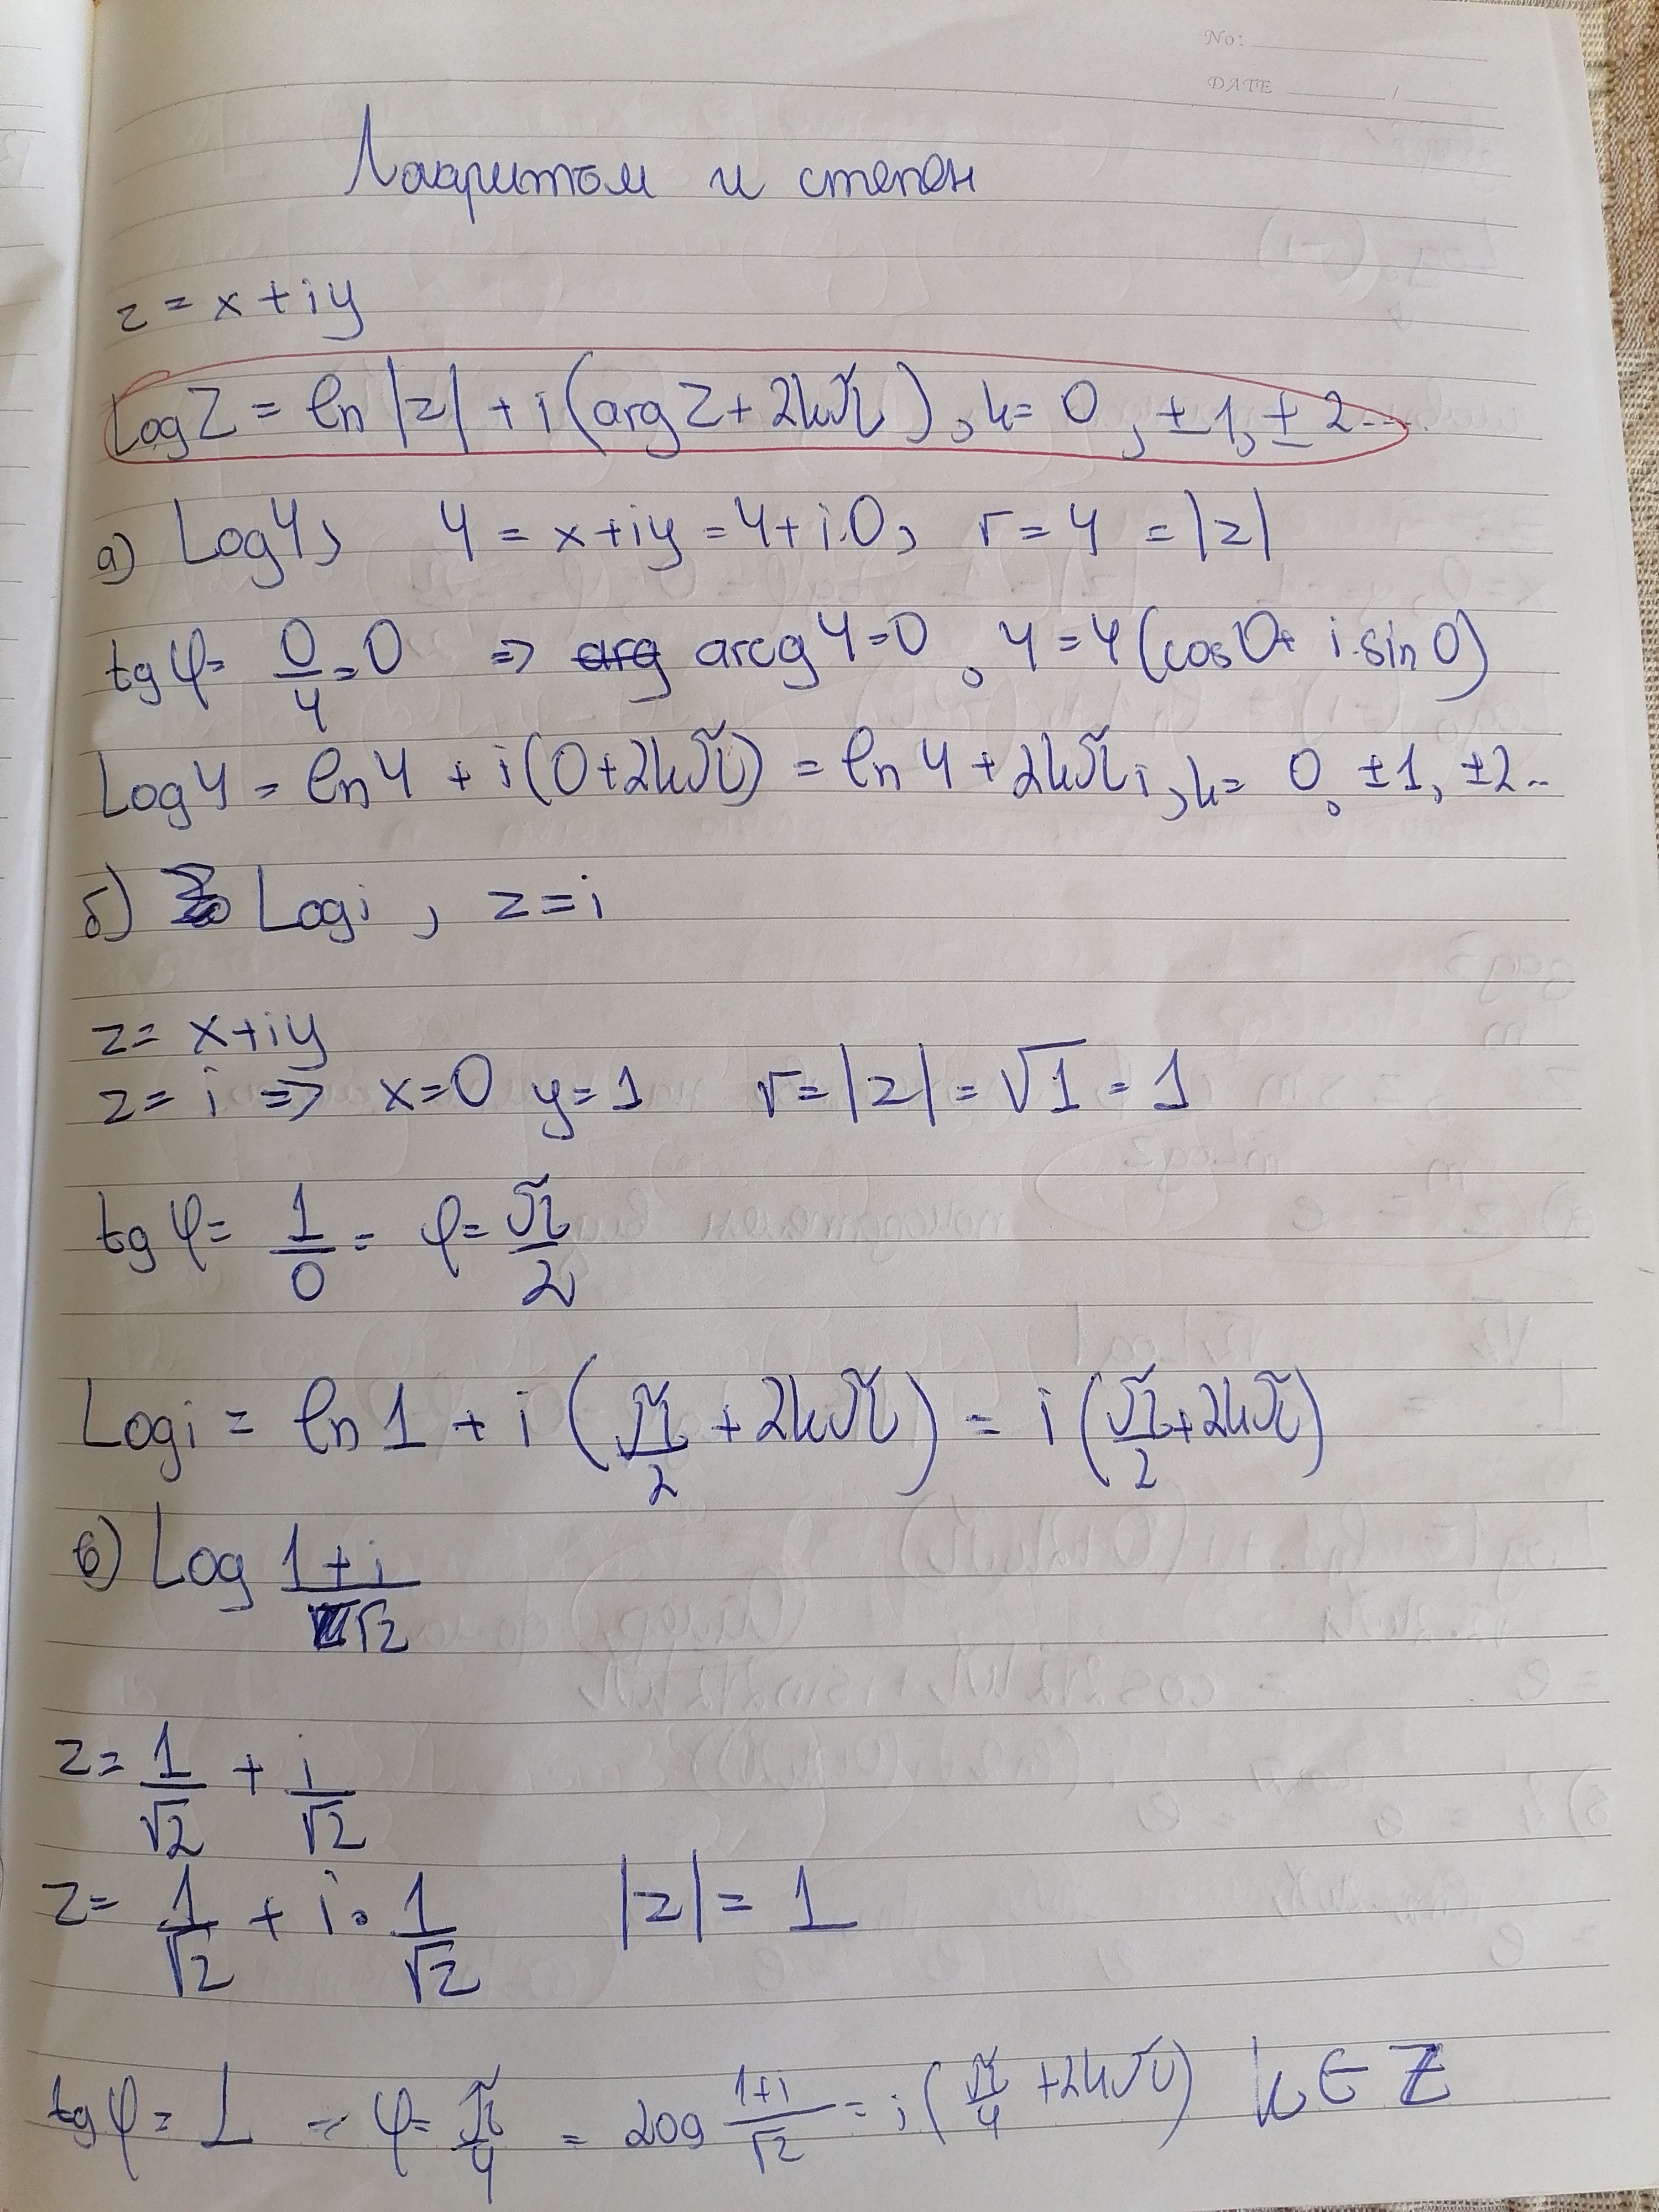 No:
DATE /
Логаритъм и степен
z = x + iy
Log Z = ln |z| + i (arg Z + 2kπ), k = 0, ±1, ±2...
а) Log 4, 4 = x + iy = 4 + i.0, r = 4 = |z|
tg φ = 0/4 = 0 => arcg 4 = 0, 4 = 4 (cos 0 + i.sin 0)
Log 4 = ln 4 + i (0 + 2kπ) = ln 4 + 2kπi, k = 0, ±1, ±2..
б) Log i, z = i
z = x + iy
z = i => x = 0 y = 1 r = |z| = √1 = 1
tg φ = 1/0 = φ = π/2
Log i = ln 1 + i (π/2 + 2kπ) = i (π/2 + 2kπ)
в) Log (1 + i)/√2
z = 1/√2 + i/√2
z = 1/√2 + i . 1/√2 |z| = 1
tg φ = 1 = φ = π/4 = Log (1+i)/√2 = i (π/4 + 2kπ) k ∈ Z